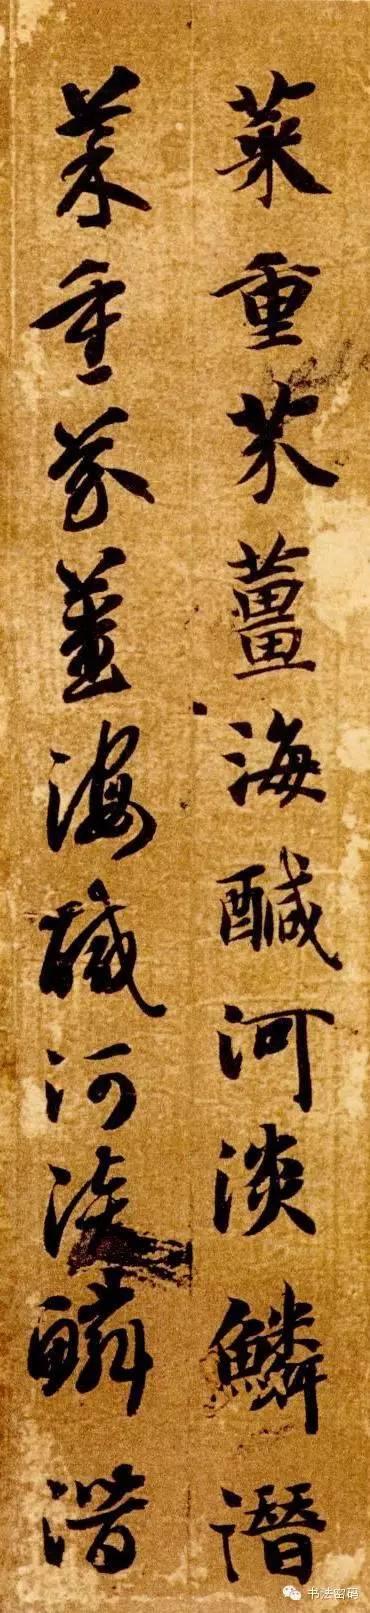 菜重芥薑海醎河淡鱗潛
菜重芥薑海醎河淡鱗潛
书法密码